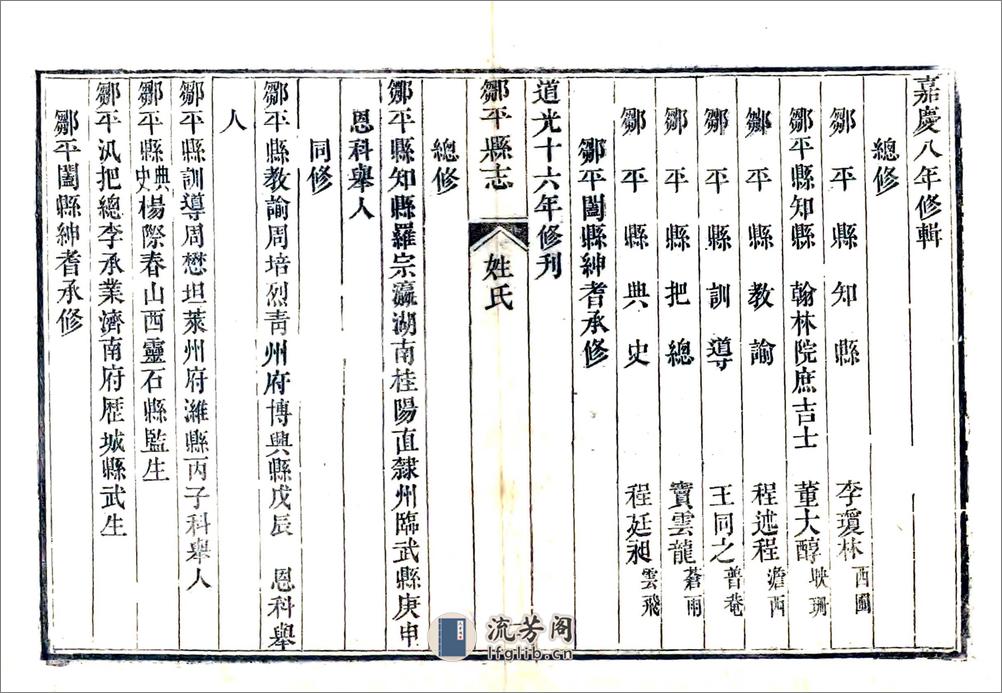 嘉慶八年修輯
總修
鄒平縣知縣 李瓊林西圃
鄒平縣知縣 翰林院庶吉士 董大醇映珊
鄒平縣教諭 程述程澹西
鄒平縣訓導 王同之普菴
鄒平縣把總 竇雲龍蒼雨
鄒平縣典史 程廷昶雲飛
鄒平闔縣紳耆承修
道光十六年修刊
鄒平縣志 姓氏
總修
鄒平縣知縣羅宗瀛湖南桂陽直隸州臨武縣庚申
恩科舉人
同修
鄒平縣教諭周培烈青州府博興縣戊辰 恩科舉
人
鄒平縣訓導周懋坦萊州府濰縣丙子科舉人
鄒平縣典史楊際春山西靈石縣監生
鄒平汛把總李承業濟南府歷城縣武生
鄒平闔縣紳耆承修
流芳阁
lfglib.cn